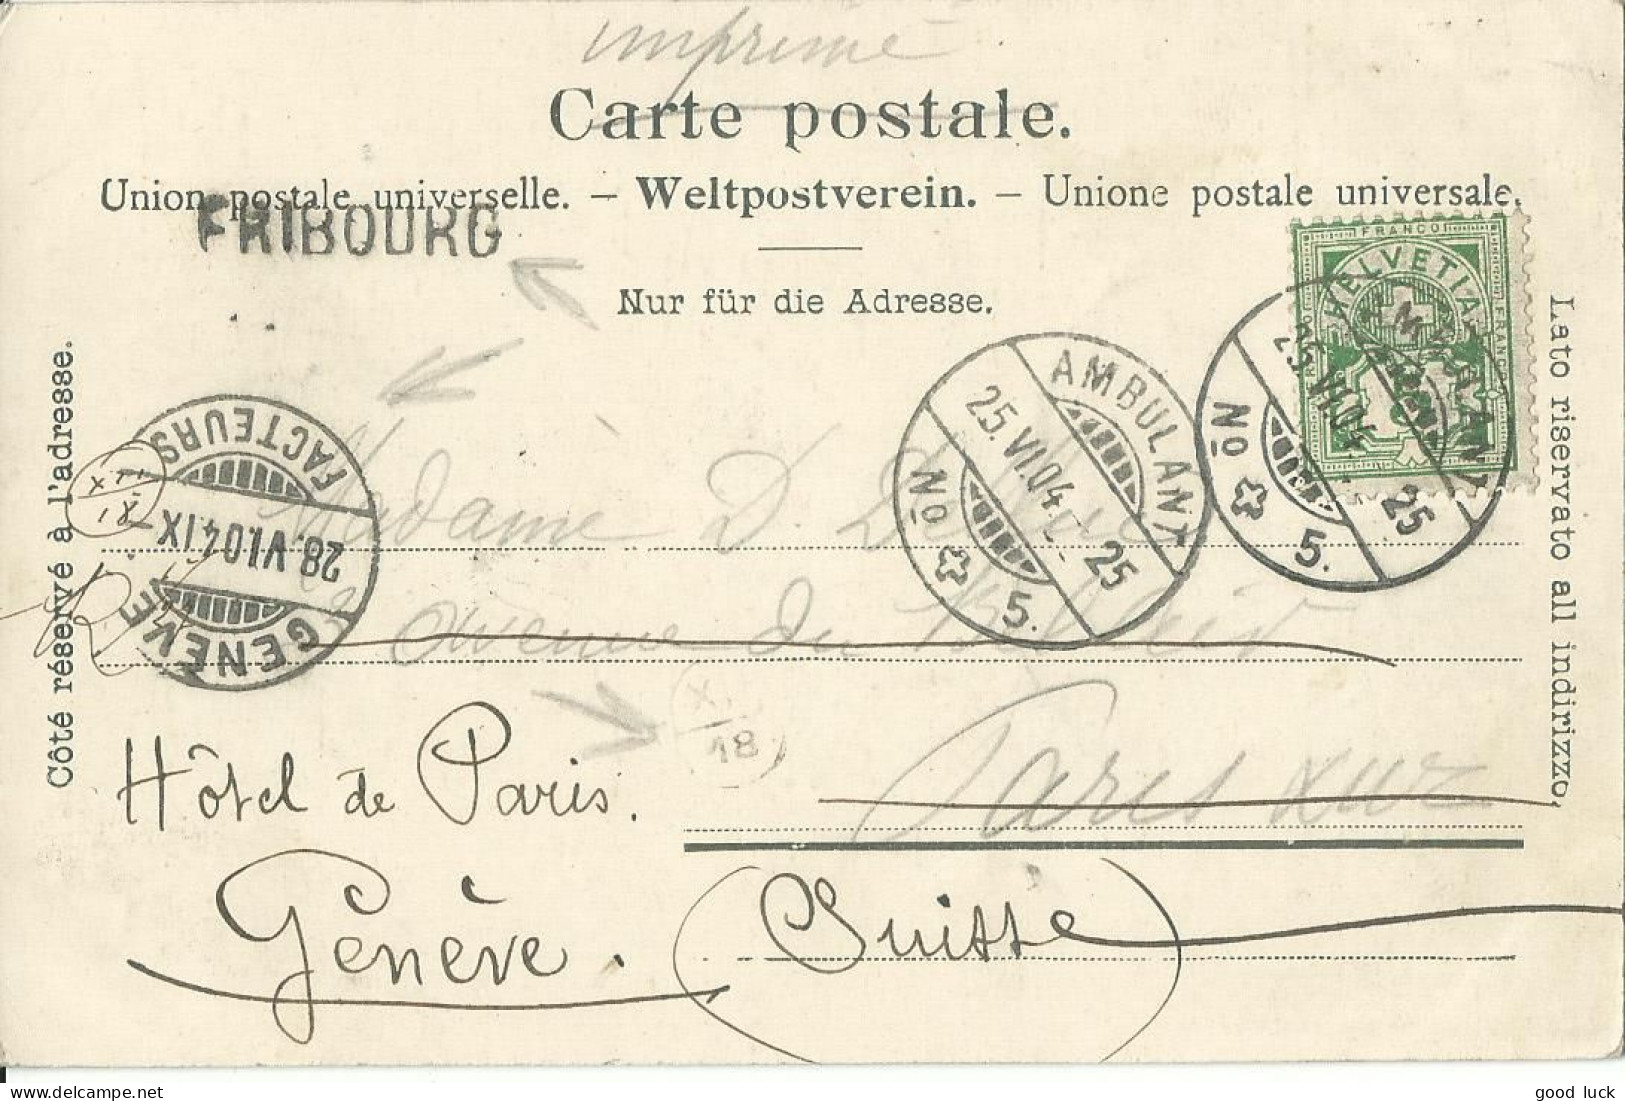 imprimé
Carte postale.
Union postale universelle. – Weltpostverein. – Unione postale universale.
FRIBOURG
Nur für die Adresse.
Côté réservé à l'adresse.
Lato riservato all indirizzo.
FRANCO
HELVETIA
AMBULANT
25.VI.04. 25
No 5.
AMBULANT
25.VI.04 25
No 5.
FACTEURS
28.VI.04.IX
GENÈVE
XI
18
Madame D.
Avenue du
XI
18
Paris
Hôtel de Paris.
Genève. (Suisse)
good luck